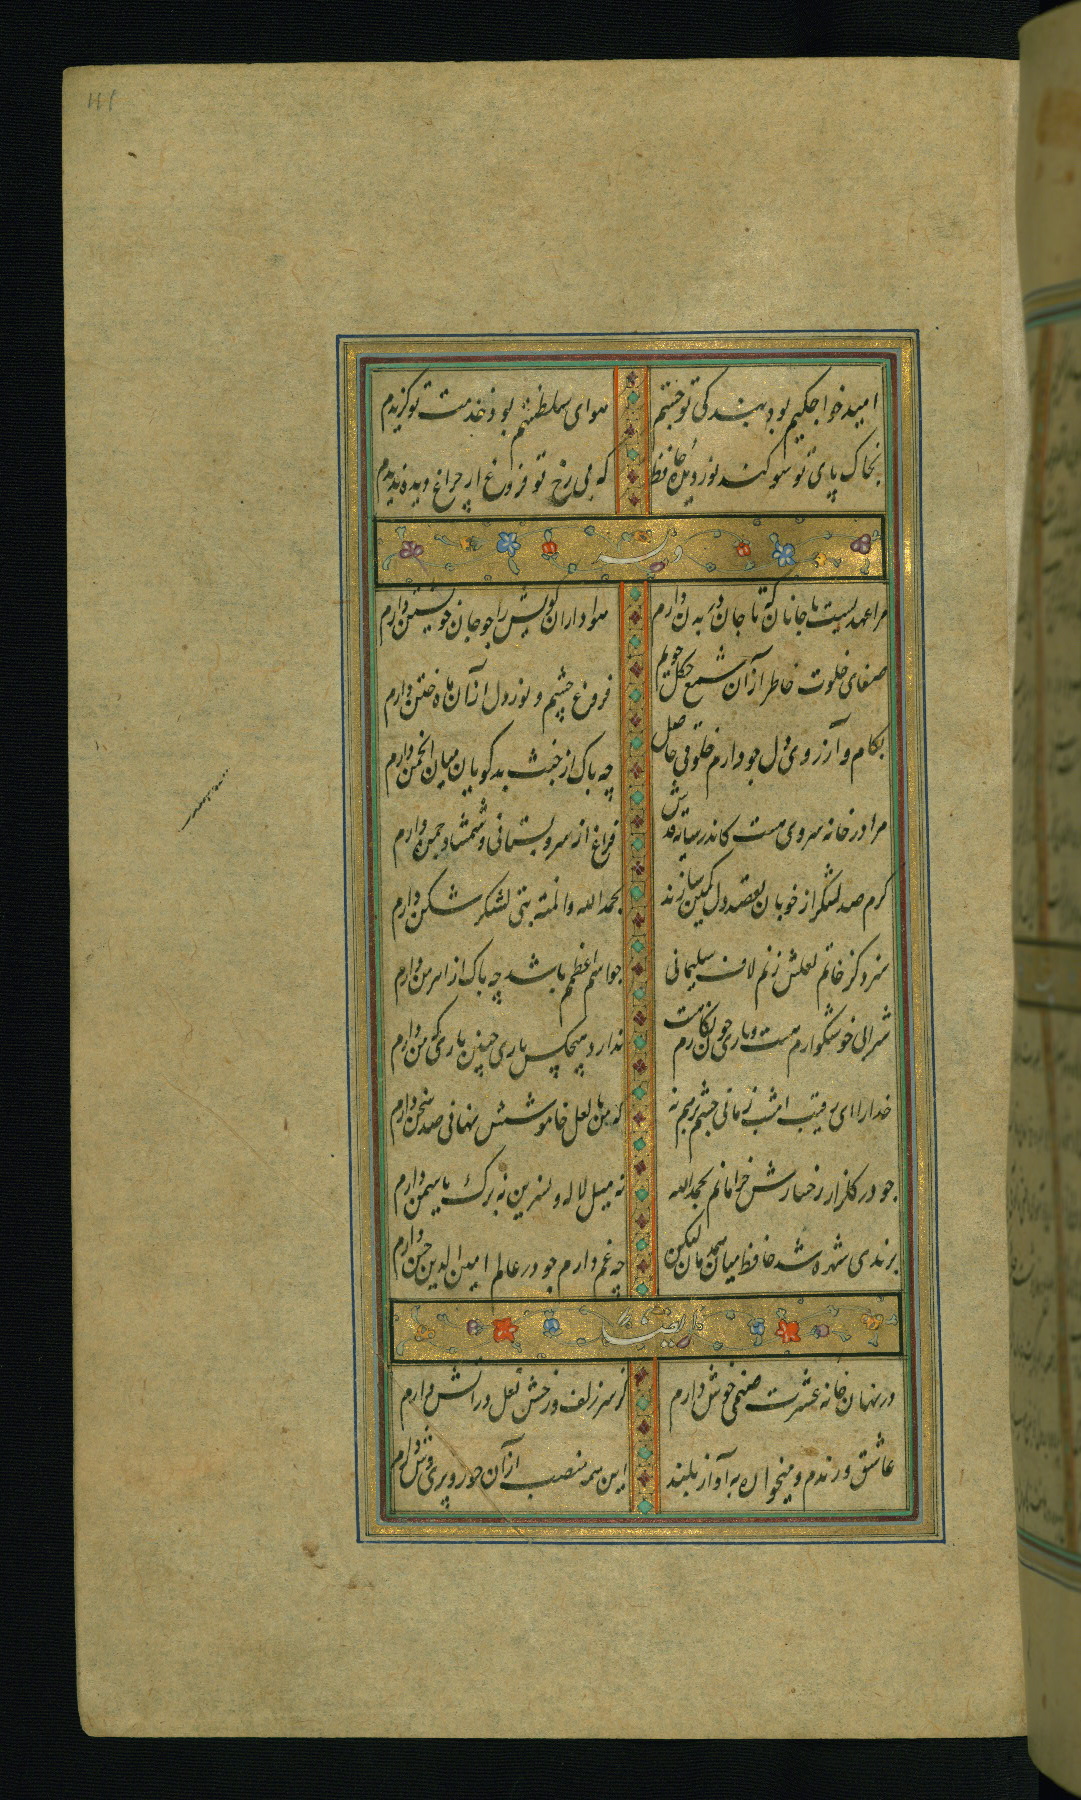 امید خواجگیم بود بندگی تو جستم هوای سلطنتم بود و خدمت تو گزیدم
بخاک پای تو سوگند و نور دیده حافظ که بی رخ تو فروغ از چراغ دیده ندیدم
وله
مرا عهدیست با جانان که تا جان در بدن دارم هواداران کویش را چو جان خویشتن دارم
صفای خلوت خاطر از آن شمع چگل جویم فروغ چشم و نور دل از آن ماه ختن دارم
بکام و آرزوی دل چو دارم خلوتی حاصل چه باک از خبث بدگویان میان انجمن دارم
مرا در خانه سروی هست کاندر سایه قدش فراغ از سرو بستانی و شمشاد چمن دارم
گرم صد لشکر از خوبان بقصد دل کمین سازند بحمد الله والمنه بتی لشکر شکن دارم
سزد کز خاتم لعلش زنم لاف سلیمانی چو اسم اعظمم باشد چه باک از اهرمن دارم
شرابی خوشگوارم هست و یاری چون نگارم هست ندارد هیچکس یاری چنین یاری که من دارم
خدا را ای رقیب امشب زمانی چشم بر هم نه که من با لعل خاموشش نهانی صد سخن دارم
چو در گلزار رخسارش خرامانم بحمد الله نه میل لاله و نسرین نه برگ یاسمن دارم
برندی شهره شد حافظ میان همدمان لیکن چه غم دارم چو در عالم امین الدین حسن دارم
ایضا
در نهان خانه عشرت صنمی خوش دارم کز سر زلف و رخش نعل در آتش دارم
عاشق و رندم و میخواره به آواز بلند این همه منصب از آن حور پریوش دارم